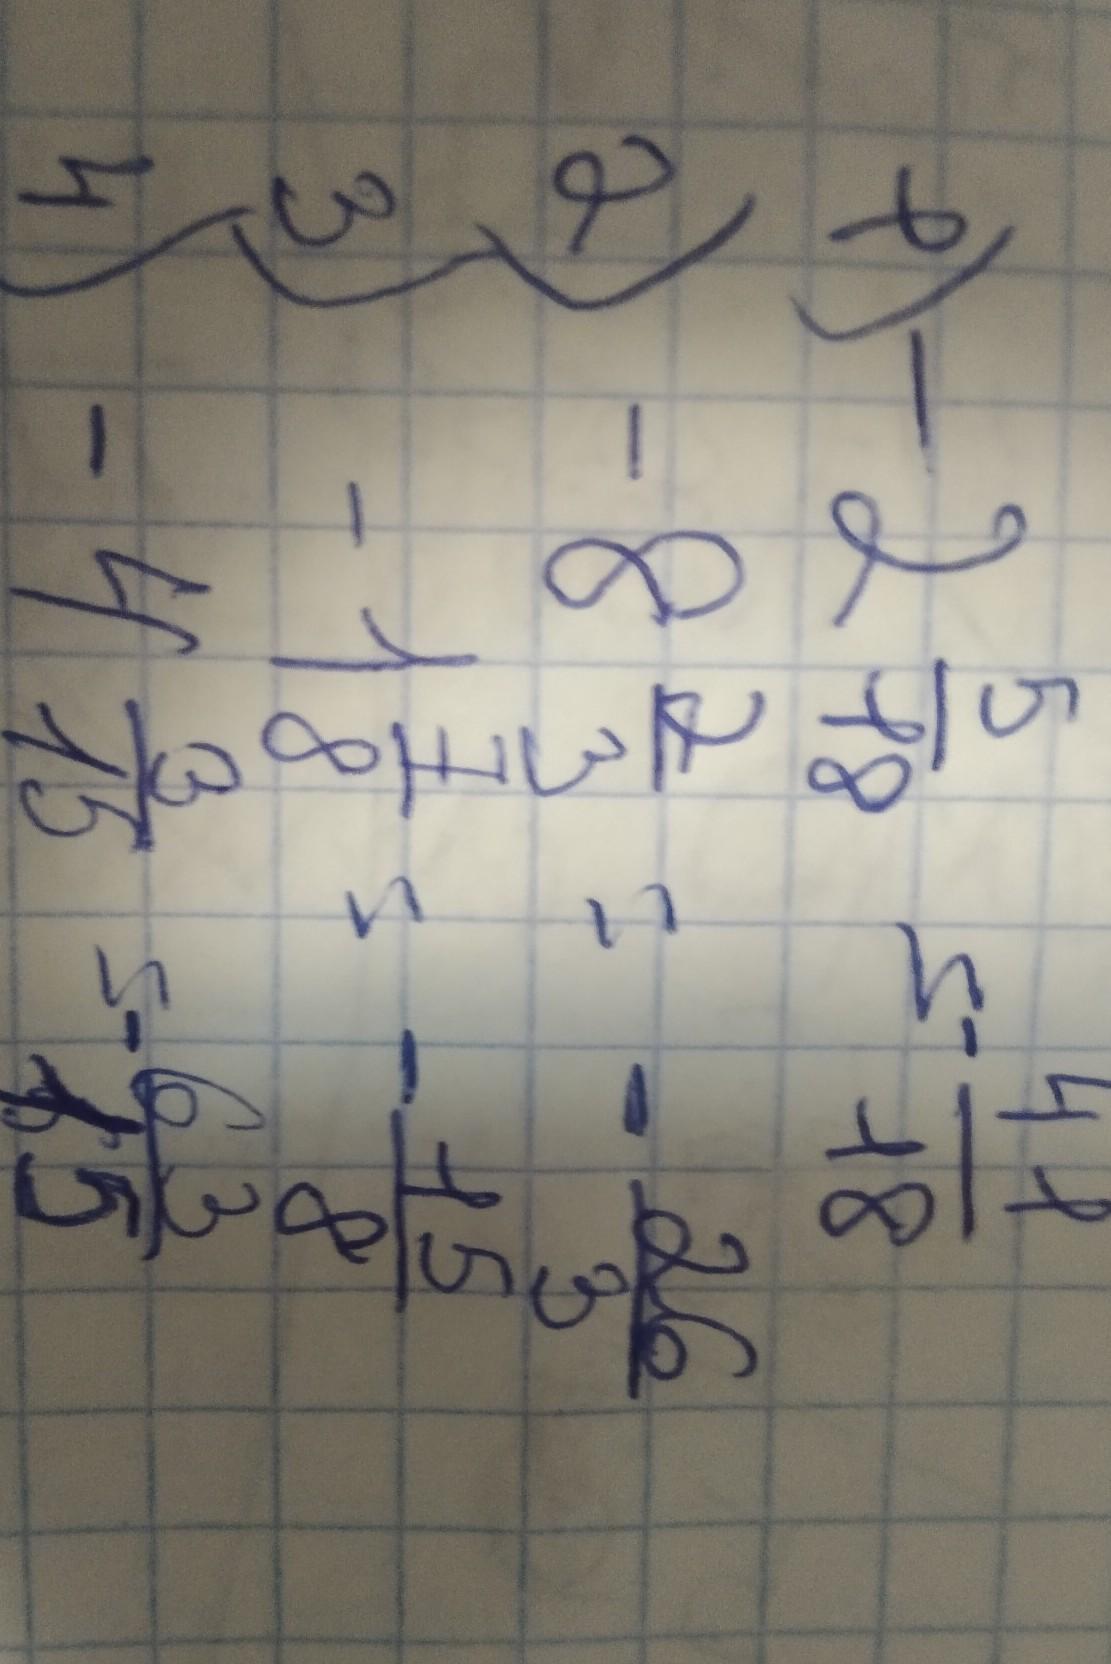 1) - 2 5/18 = - 41/18
2) - 8 2/3 = - 26/3
3) - 1 7/8 = - 15/8
4) - 4 3/15 = - 63/15